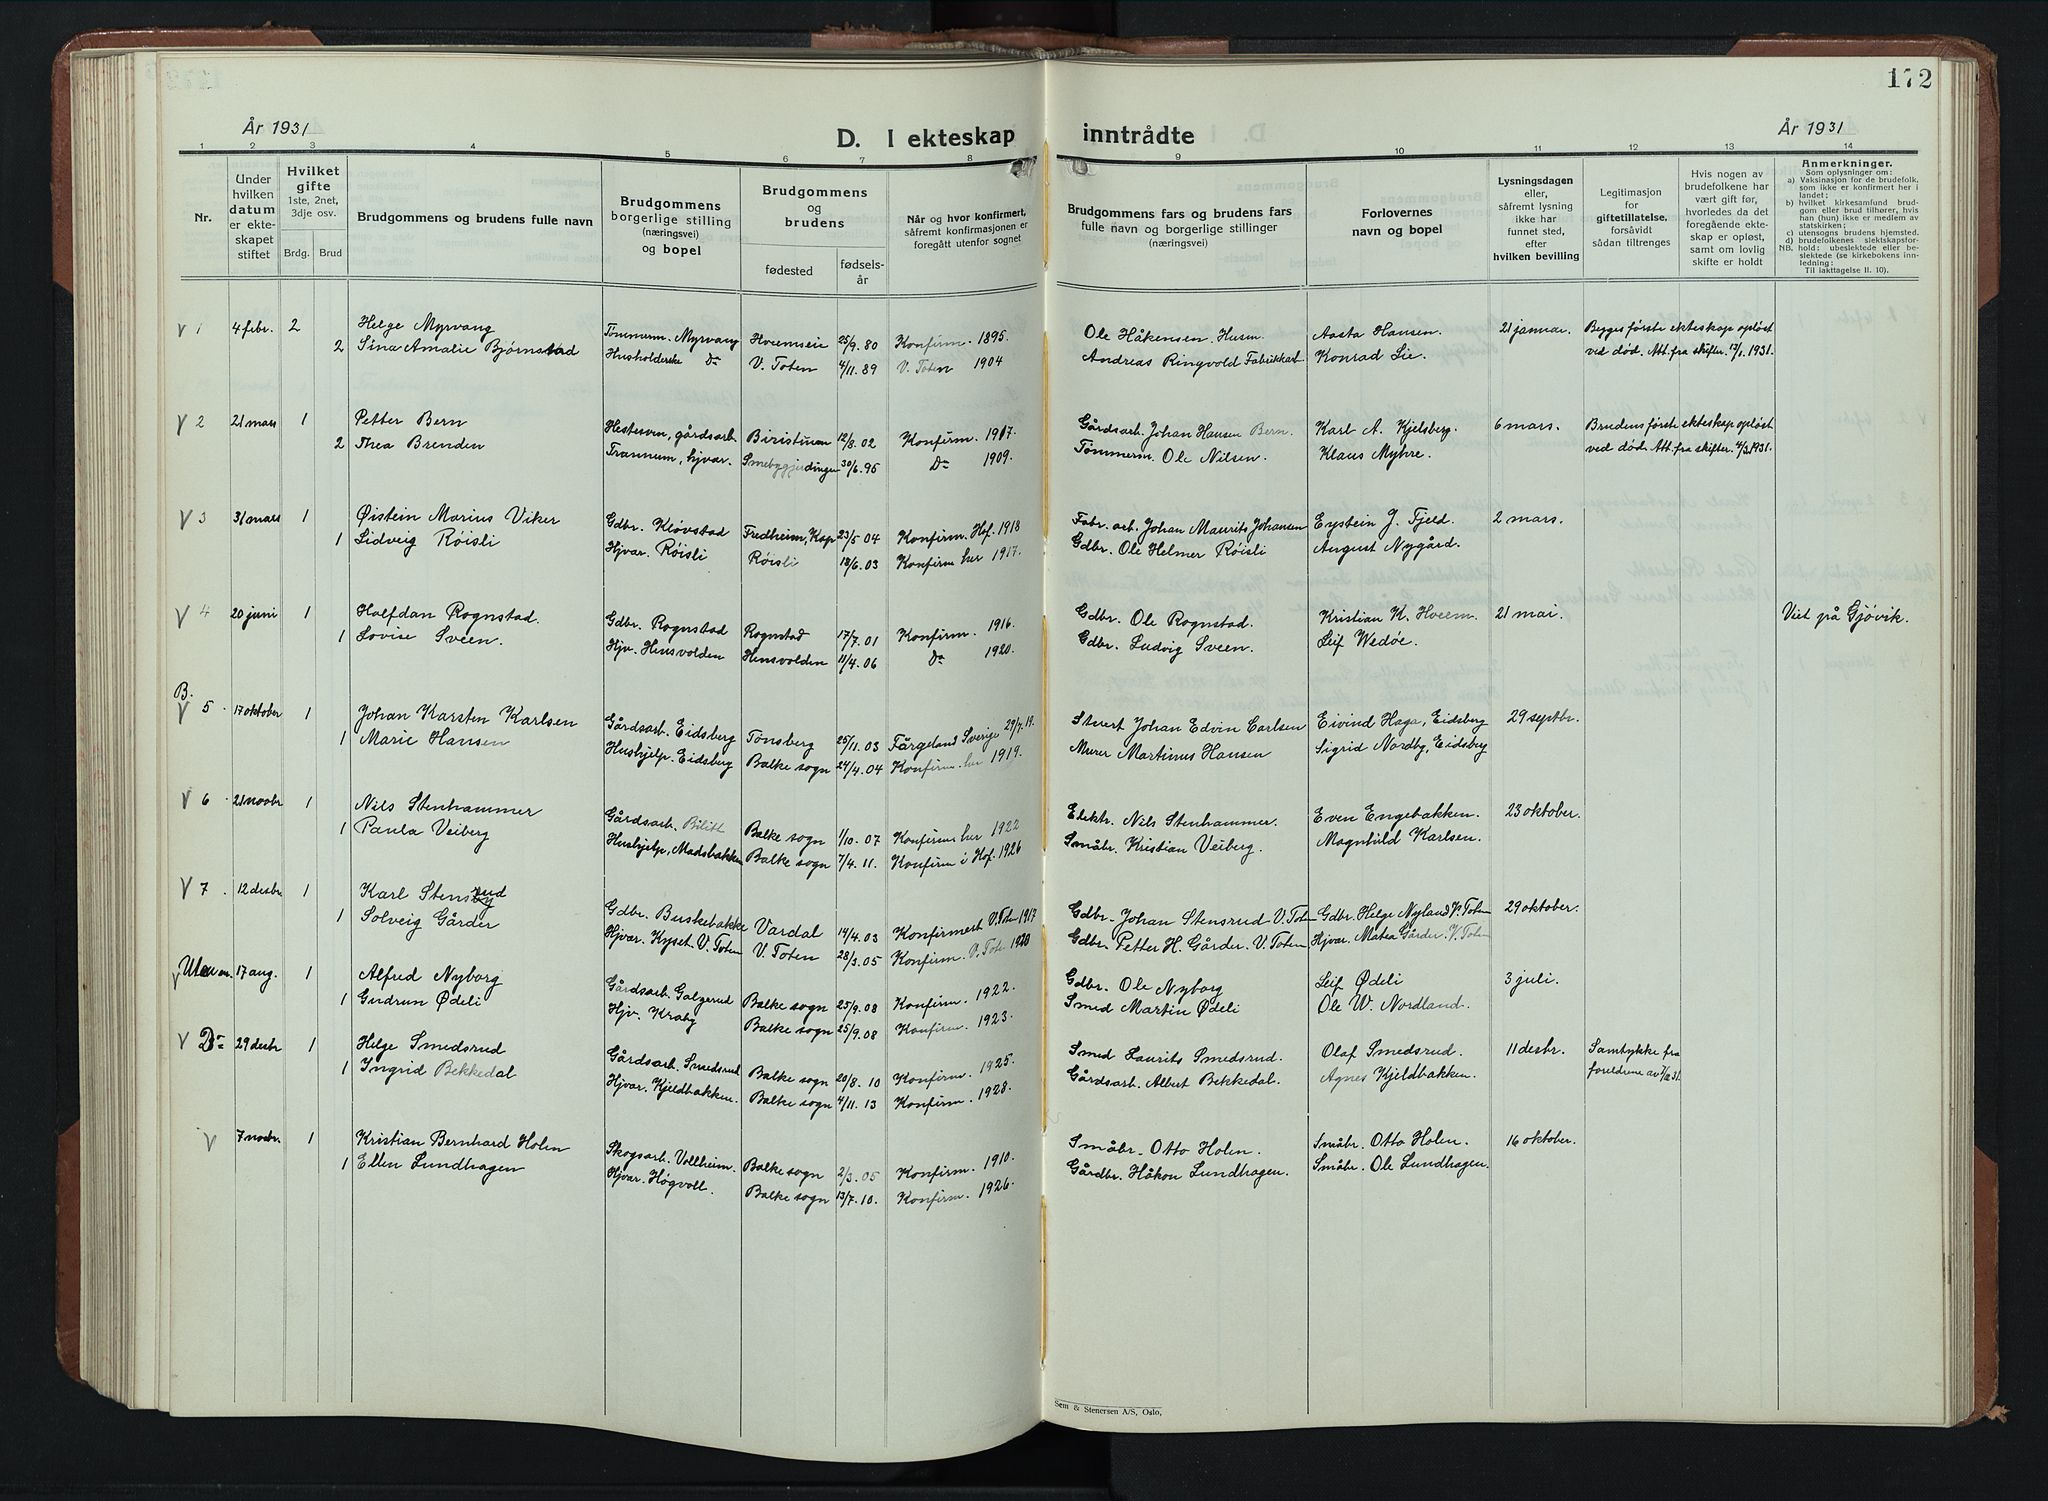 172
År 1931
D. I ekteskap inntrådte
År 1931
1 2 3 4 5 6 7 8 9 10 11 12 13 14
Nr.
Under hvilken datum er ekteskapet stiftet
Hvilket gifte 1ste, 2net, 3dje osv.
Brdg. Brud
Brudgommens og brudens fulle navn
Brudgommens borgerlige stilling (næringsvei) og bopel
Brudgommens og brudens
fødested
fødselsår
Når og hvor konfirmert, såfremt konfirmasjonen er foregått utenfor sognet
Brudgommens fars og brudens fars fulle navn og borgerlige stillinger (næringsvei)
Forlovernes navn og bopel
Lysningsdagen eller, såfremt lysning ikke har funnet sted, efter hvilken bevilling
Legitimasjon for giftetillatelse, forsåvidt sådan tiltrenges
Hvis nogen av brudefolkene har vært gift før, hvorledes da det foregående ekteskap er opløst, samt om lovlig skifte er holdt
Anmerkninger.
Som oplysning om:
a) Vaksinasjon for de brudefolk, som ikke er konfirmert her i landet;
b) hvilket kirkesamfund brudgom eller brud tilhører, hvis han (hun) ikke er medlem av statskirken;
c) utensogns brudens hjemsted.
d) brudefolkenes slektskapsforhold: ubeslektede eller beslektede (se kirkebokens innledning:
NB.
Til iakttagelse II. 10).
V 1 4 febr. 2 Helge Myrvang Tømmerm. Myrvang Hveemseie 25/9. 80 Konfirm. 1895. Ole Håkensen. Husm. Aasta Hansen. 21 januar. Begges første ekteskap opløst
2 Sina Amalie Bjørnstad Husholderske Do V. Toten 4/11. 89 V. Toten 1904 Andreas Ringvold Fabrikkarb. Konrad Lie. ved død. Att. fra skifter. 17/1. 1931.
V 2 21 mars 1 Petter Bern Hestesven, gårdsarb. Biristuen 12/8. 02 Konfirm. 1917. Gårdsarb. Johan Hansen Bern. Karl A. Kjelsberg. 6 mars. Brudens første ekteskap opløst
2 Thea Brenden Trannum, hjvar. Smebyggjerdingen 30/6. 95 Do 1909. Tømmerm. Ole Nilsen. Klaus Myhre. ved død Att. fra skifter. 4/3 1931.
V 3 31 mars 1 Øistein Marius Viker Gdbr. Kløvstad Fredheim, Kap 23/5 04 Konfirm. Hof. 1918 Fabr. arb. Johan Maurits Johansen Eystein J. Fjeld. 2 mars.
1 Lidveig Røisli Hjvar. Røisli Røisli 18/6. 03 Konfirm her 1917. Gdbr. Ole Helmer Røisli August Nygård.
V 4 20 juni 1 Halfdan Rognstad. Gdbr. Rognstad Rognstad 17/7. 01 Konfirm. 1916. Gdbr. Ole Rognstad. Kristian K. Hveem. 21 mai. Viet på Gjøvik.
1 Lovise Sveen. Hjv. Hensvolden Hensvolden 11/4. 06 Do 1920. Gdbr. Ludvig Sveen. Leif Wedøe.
B.
V 5 17 oktober 1 Johan Karsten Karlsen Gårdsarb. Eidsberg Tønsberg 25/11. 03 Färgeland Sverige 29/7. 19. Stuert Johan Edvin Carlsen Eivind Haga, Eidsberg 29 septbr.
1 Marie Hansen Hushjelp. Eidsberg Balke sogn 24/4. 04 Konfirm. her 1919. Murer Martinus Hansen Sigrid Nordby, Eidsberg
V 6 21 novbr 1 Nils Stenhammer Gårdsarb. Bilitt Balke sogn 1/10. 07 Konfirm her 1922 Elektr. Nils Stenhammer. Even Engebakken. 23 oktober.
1 Paula Veiberg Hushjelp, Madsbakken Balke sogn 7/4. 11. Konfirm i Hof. 1926 Småbr. Kristian Veiberg. Magnhild Karlsen.
V 7 12 desbr 1 Karl Stensrud Gdbr. Buskebakke Vardal 14/4. 03 Konfirmert V. Toten 1917 Gdbr. Johan Stensrud V. Toten Gdbr. Helge Nyland V. Toten 29 oktober.
1 Solveig Gårder Hjvar. Kyset. V. Toten V. Toten 28/3. 05 Konfirm. V. Toten 1920 Gdbr. Petter H. Gårder. V. Toten Hjvar. Matea Gårder. V. Toten
V Uten nr. 17 aug. 1 Alfred Nyborg Gårdsarb. Galgerud Balke sogn 25/9. 08 Konfirm. 1922. Gdbr. Ole Nyborg Leif Ødeli 3 juli.
1 Gudrun Ødeli Hjv. Kraby Balke sogn 25/9. 08 Konfirm. 1923. Smed Martin Ødeli Ole W. Nordland.
V Do 29 desbr 1 Helge Smedsrud Gårdsarb. Smedsrud Balke sogn 20/8. 10 Konfirm. 1925. Smed Laurits Smedsrud. Olaf Smedsrud. 11 desbr. Samtykke fra
1 Ingrid Bekkedal Hjvar. Kjeldbakken. Balke sogn 4/11. 13 Konfirm. 1928. Gårdsarb. Albert Bekkedal. Agnes Kjeldbakken. foreldrene av 7/12 31.
V 7 novbr. 1 Kristian Bernhard Holen Skogsarb. Vollheim. Balke sogn 2/3. 05 Konfirm. 1910. Småbr. Otto Holen. Småbr. Otto Holen. 16 oktober.
1 Ellen Lundhagen Hjvar. Høgvoll. Balke sogn 13/7. 10. Konfirm. 1926. Gårdbr. Håkon Lundhagen. Småbr. Ole Lundhagen.
Sem & Stenersen A/S, Oslo.